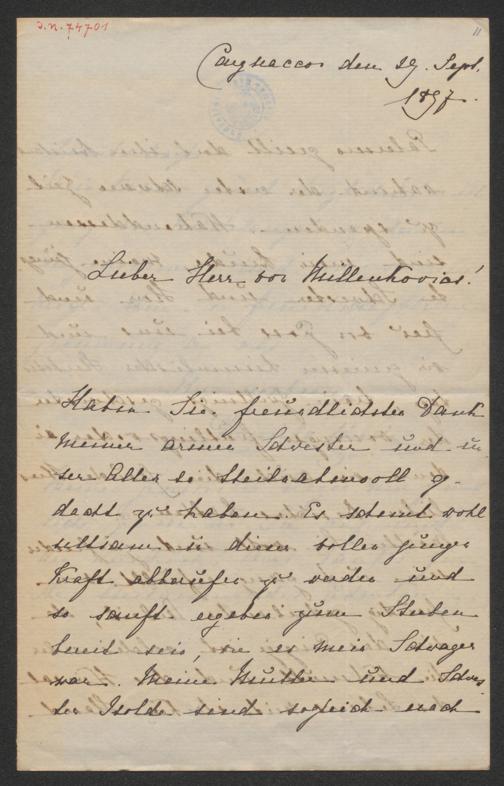 J.N. 74701
11
Cagnacco den 29. Sept.
1897.
Lieber Herr von Millenkovics!
Haben Sie freundlichsten Dank
meiner armen Schwester und un
ser Aller so theilnahmsvoll ge-
dacht zu haben. Es scheint wohl
seltsam in dieser vollen junger
Kraft abberufen zu werden und
so sanft ergeben zum Sterben
bereit sein, wie es mein Schwager
war. Meine Mutter und Schwes
ter Isolde sind sogleich nach